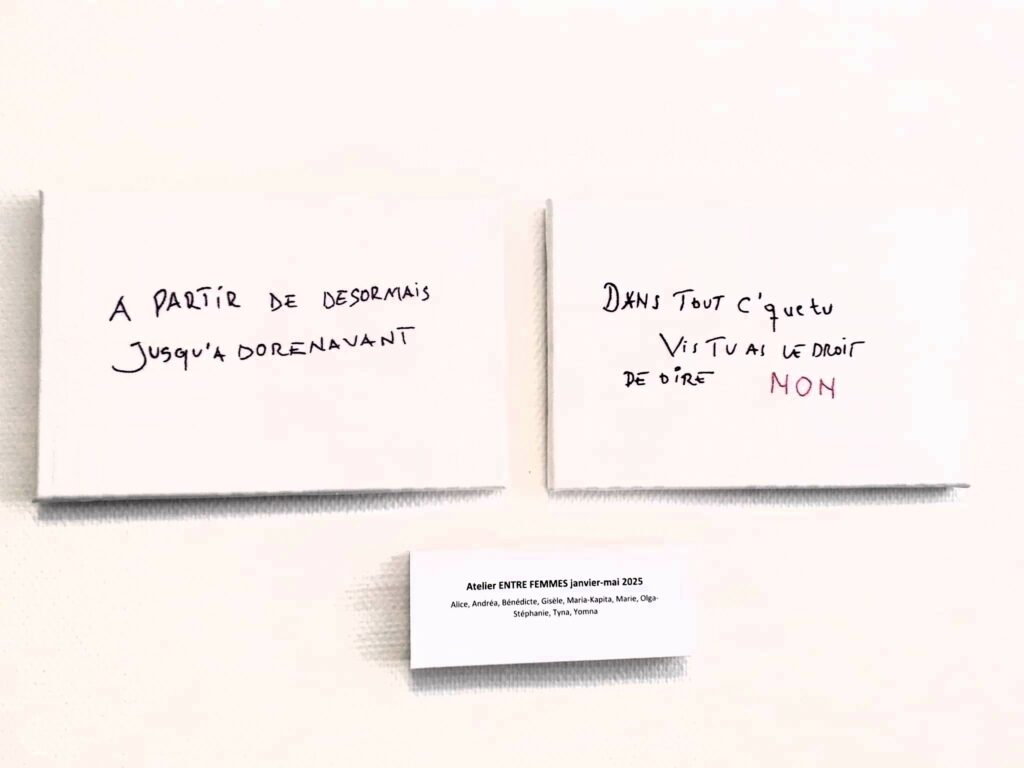 A PARTIR DE DESORMAIS
JUSQU'A DORENAVANT
DANS TOUT C'que tu
VIS TU AS LE DROIT
DE DIRE NON
Atelier ENTRE FEMMES janvier-mai 2025
Alice, Andréa, Bénédicte, Gisèle, Maria-Kapita, Marie, Olga-
Stéphanie, Tyna, Yomna